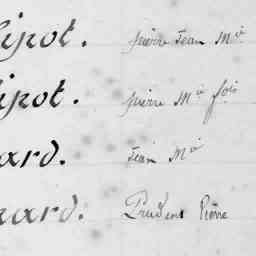 ipot. pierre Jean M.ie
ipot. pierre M.ie fois
ard. Jean M.ie
ard. Prudent Pierre